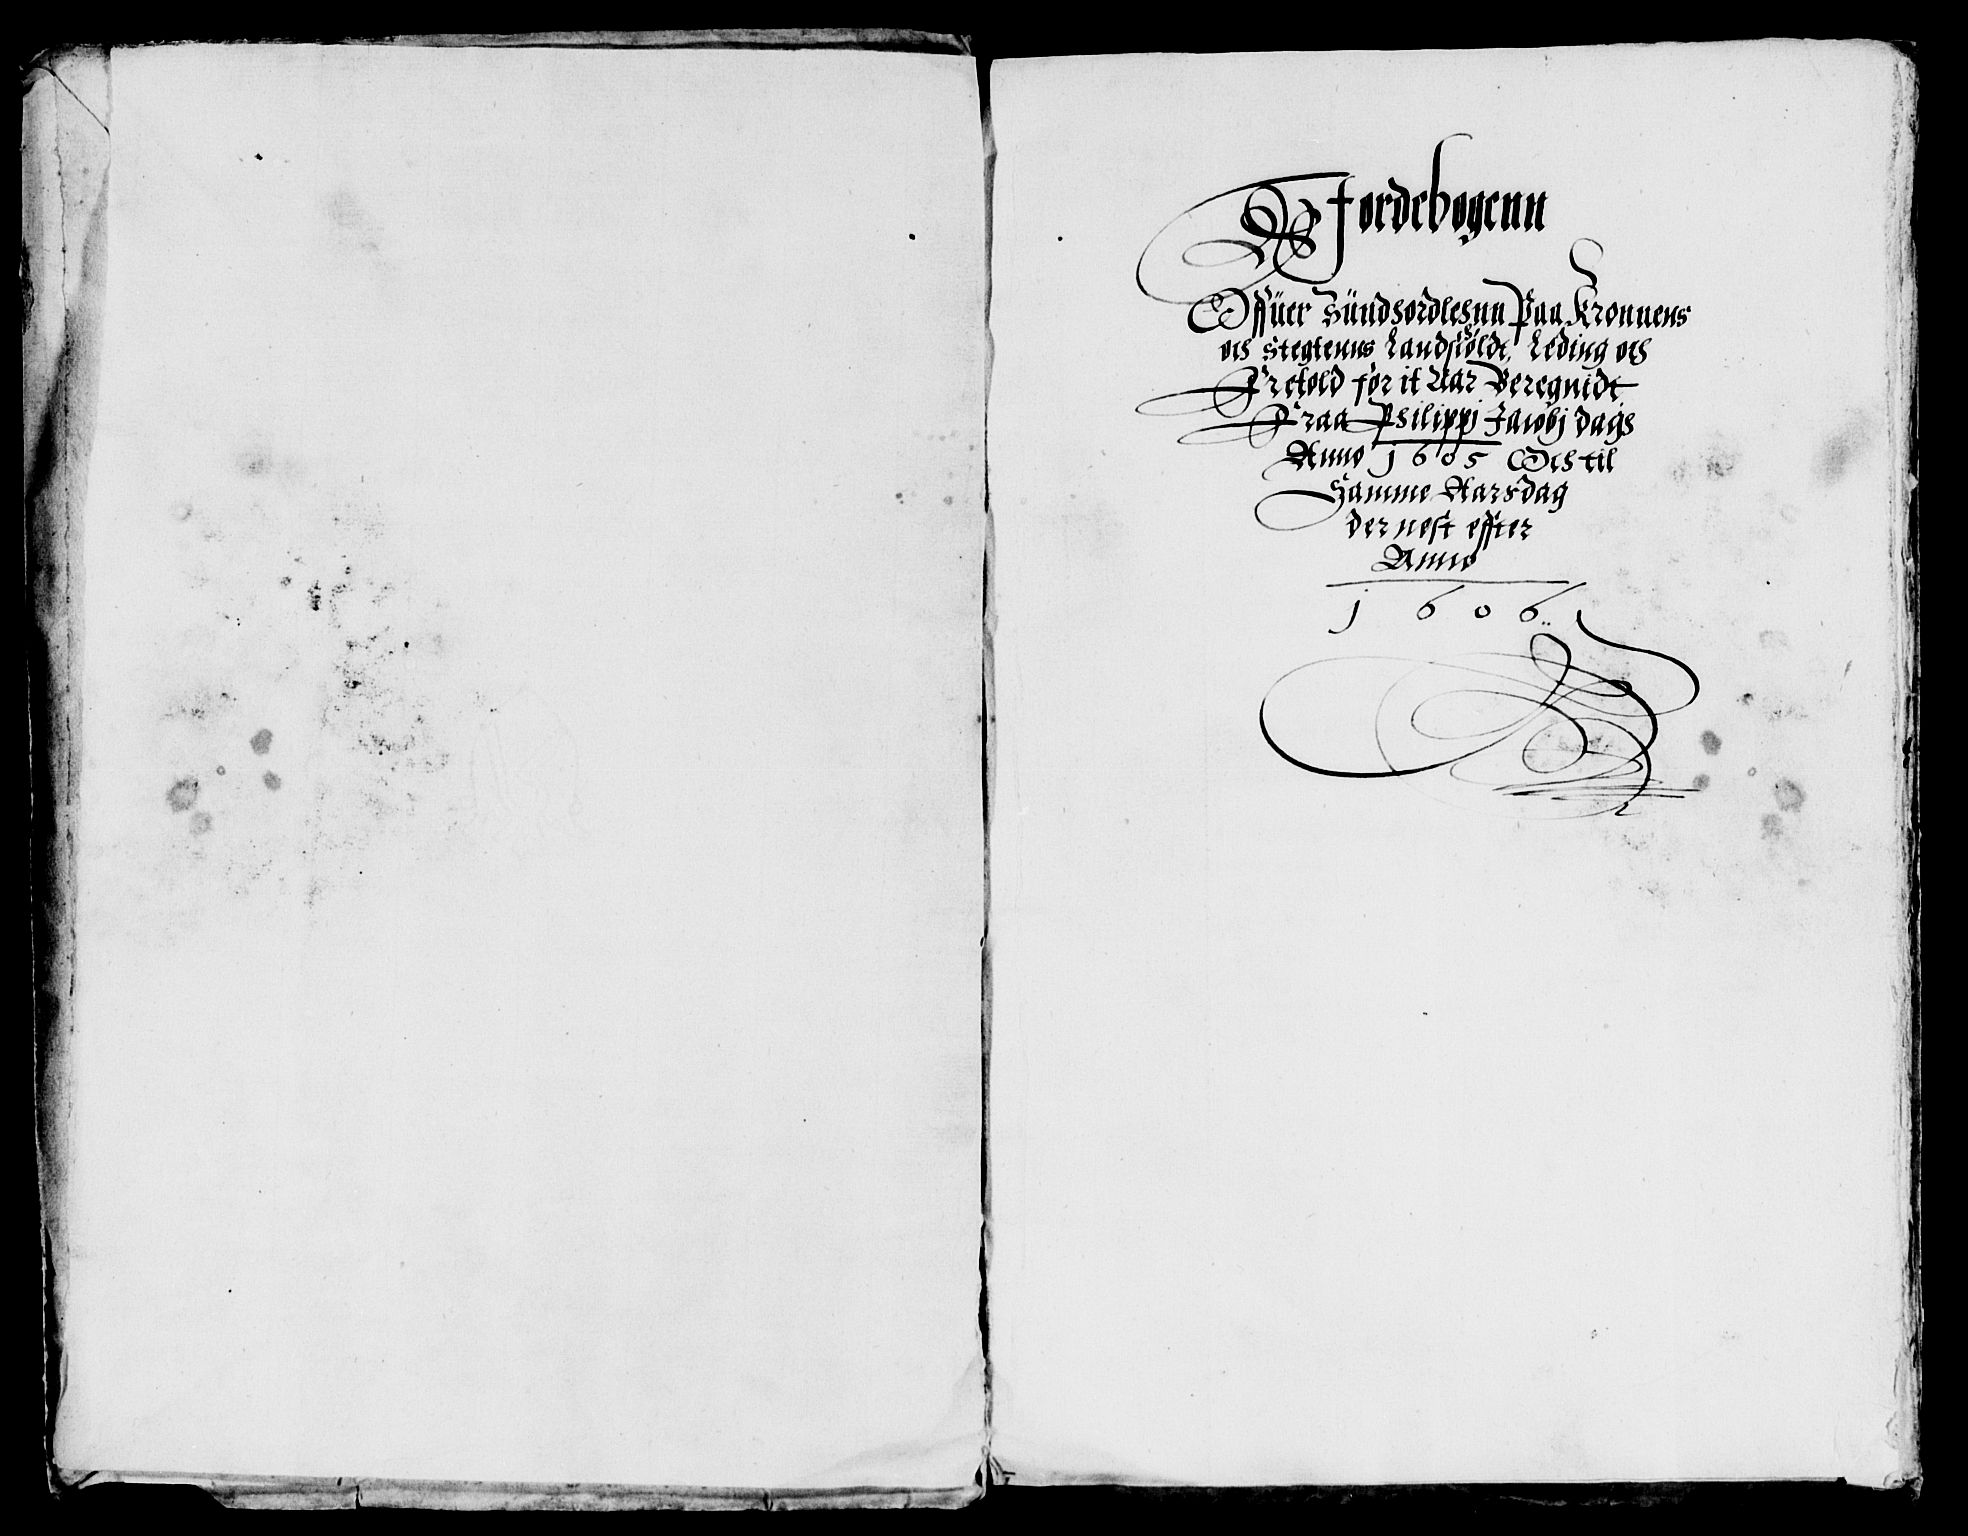 Jordebogenn
Offuer Sundhordlehnn Paa Kronnens
och Stegtenns Landskøldt, Leding och
Fretold for it Aar Beregnidt
Fraa Philippi Jacobj dags
Anno 1605 Och til
Samme Aarsdag
der nest effter
Anno
1606